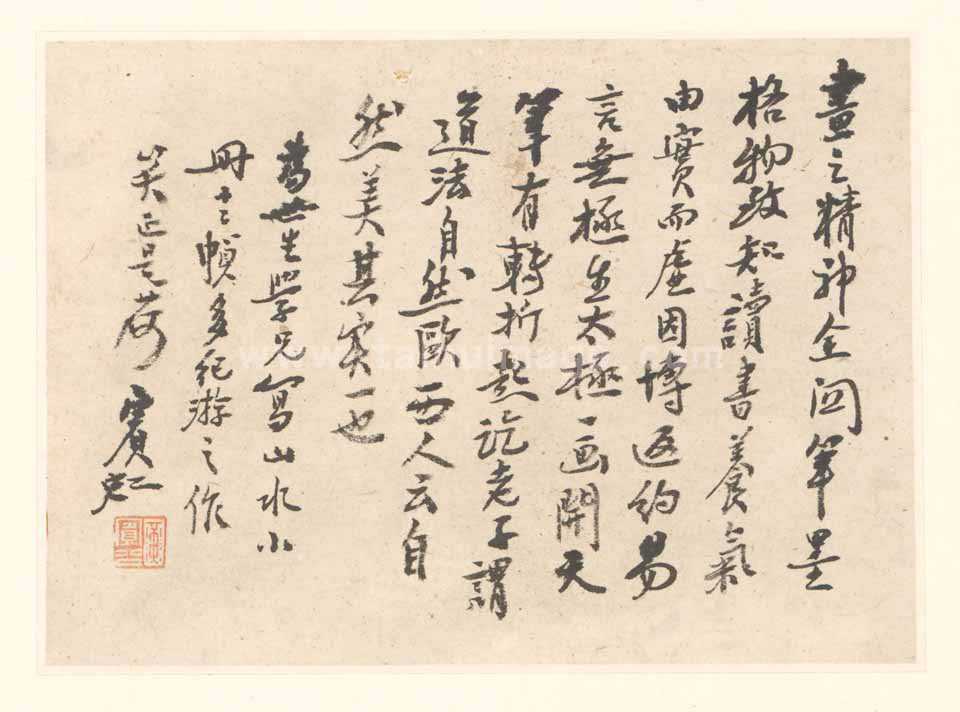 畫之精神全關筆墨
格物致知讀書養氣
由實而虛因博返約易
言無極生太極一畫開天
筆有轉折起訖老子謂
道法自然歐西人云自
然美其實一也
世生學兄寫山水小
冊十二幀多紀游之作
笑正是荷 賓虹